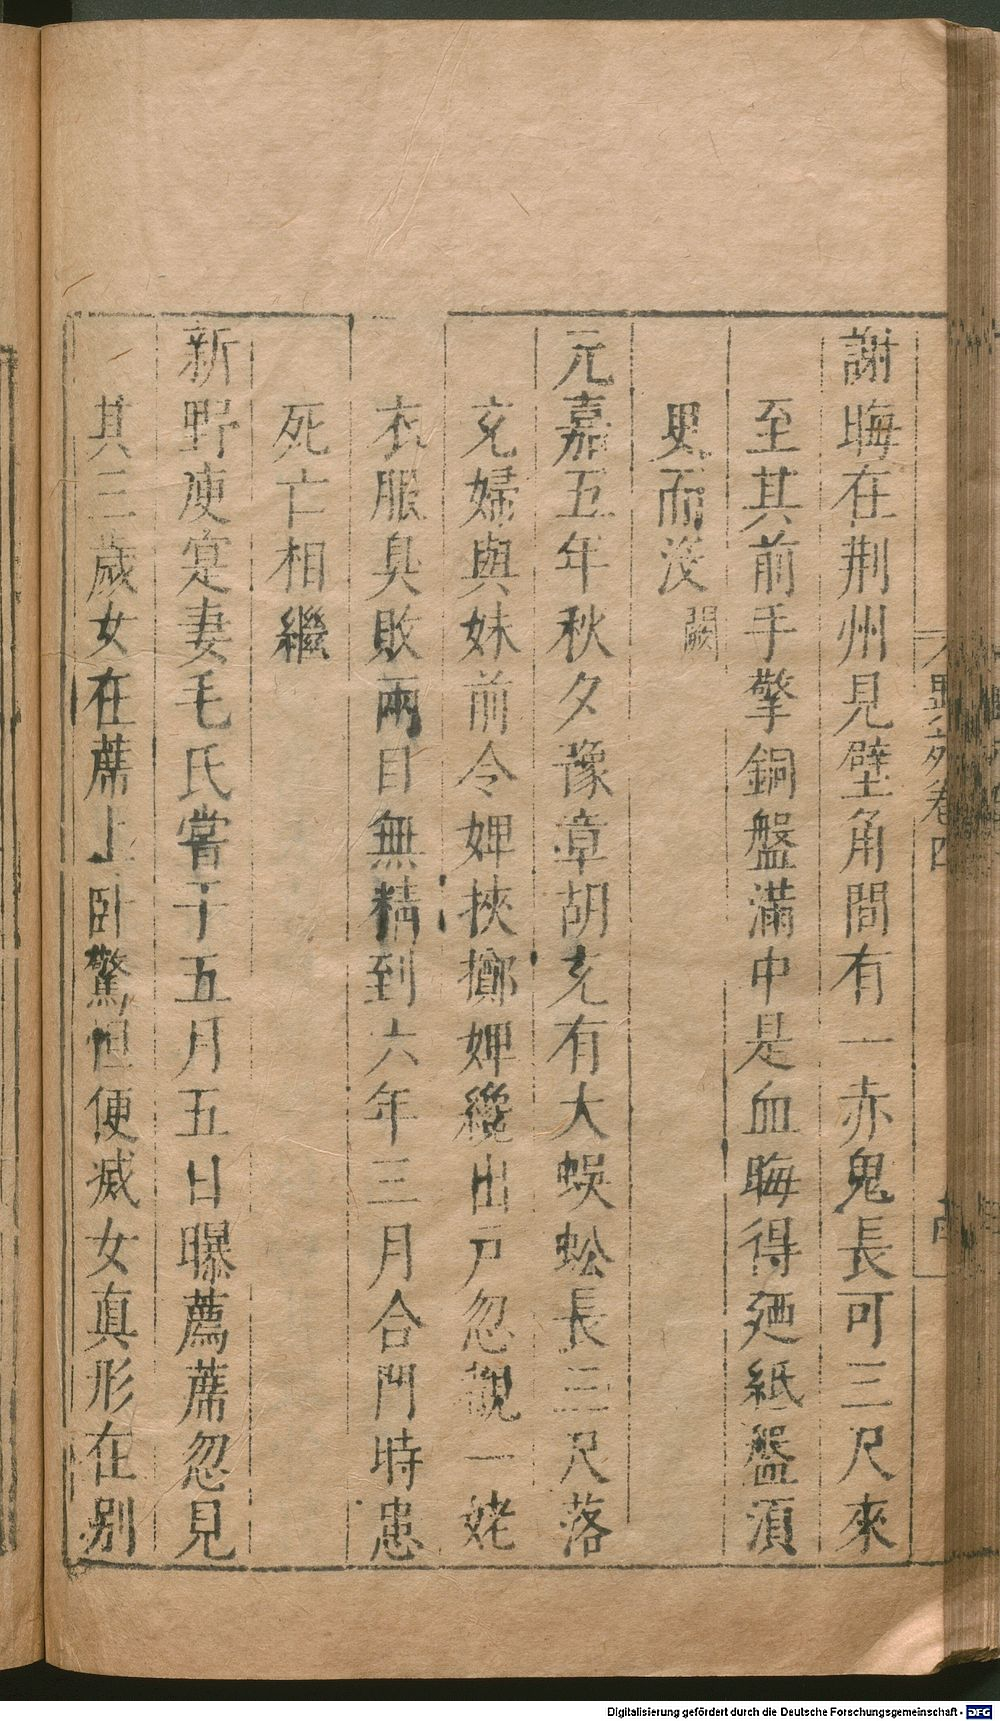 謝晦在荆州見壁角間有一赤鬼長可三尺來
至其前手擎銅盤滿中是血晦得廼紙盤湏
臾而沒闕
元嘉五年秋夕豫章胡充有大蜈蚣長三尺落
充婦與妹前令婢挾擲婢纔出戸忽覩一姥
衣服臭敗兩目無精到六年三月合門時患
死亡相繼
新野庾寔妻毛氏嘗于五月五日曝薦蓆忽見
其三歲女在蓆上卧驚怛便滅女真形在别
異苑卷四
Digitalisierung gefördert durch die Deutsche Forschungsgemeinschaft - DFG